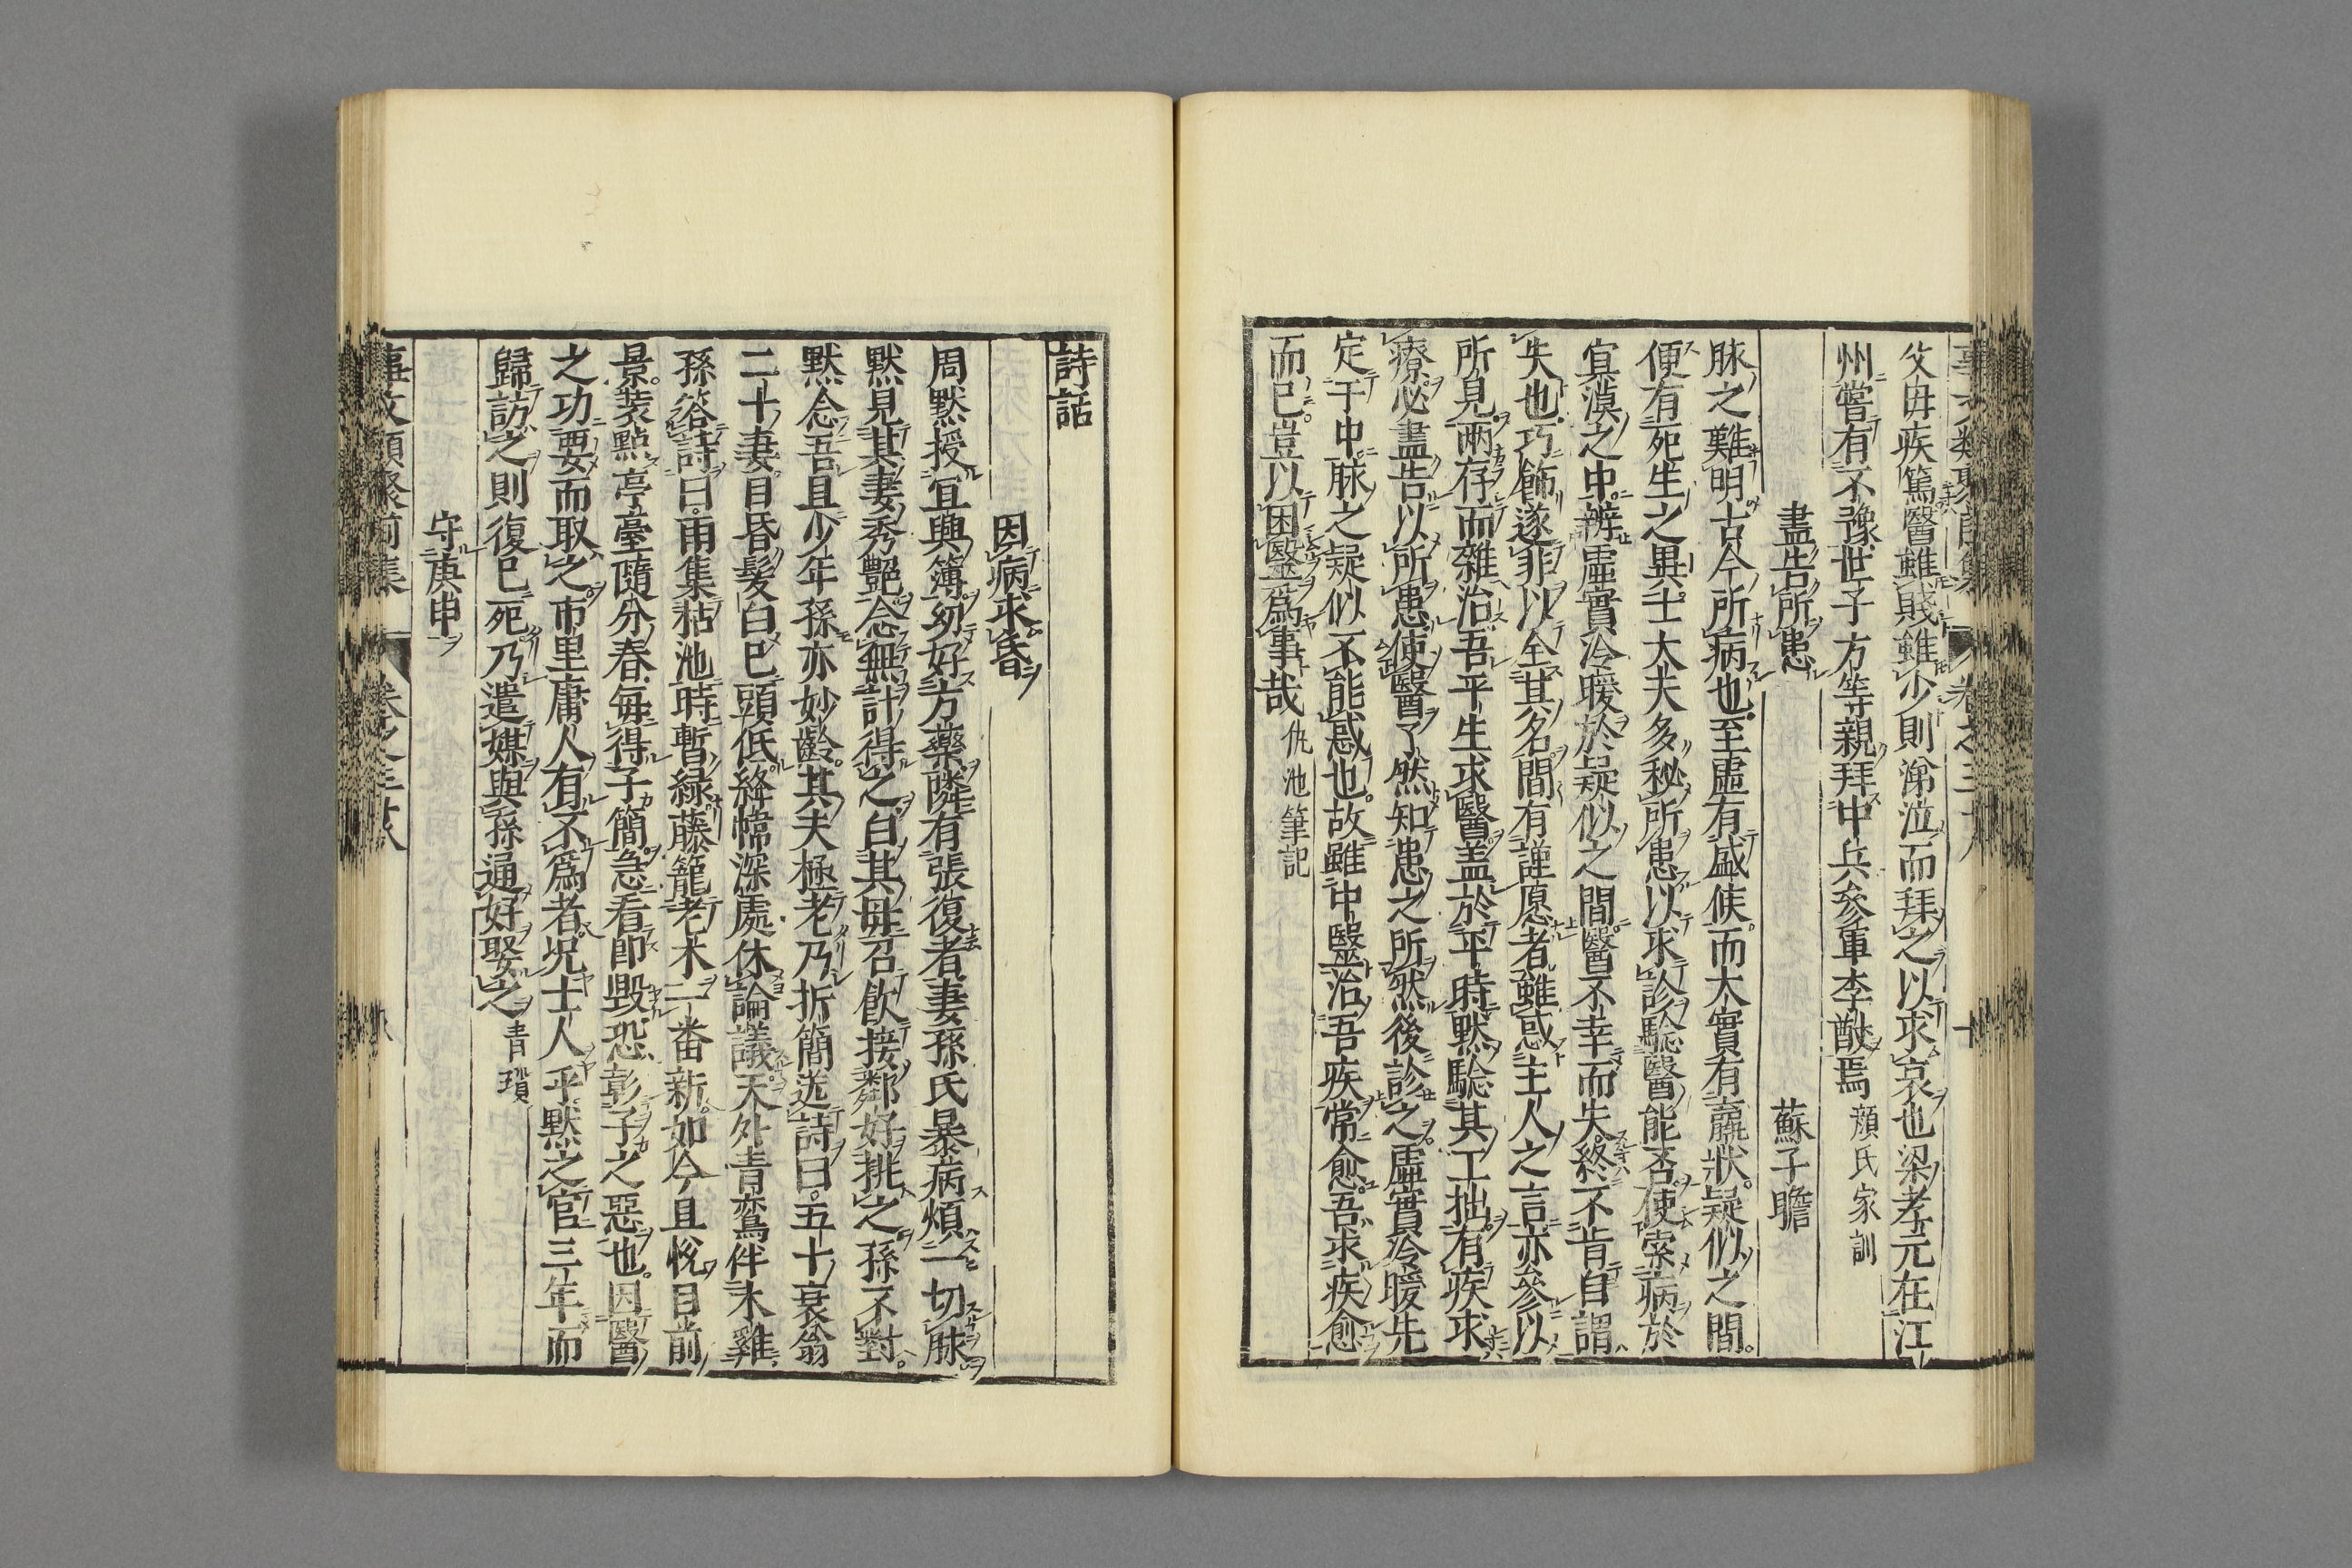 父母疾篤醫雖賤雖少則涕泣而拜之以求哀也梁孝元在江
州嘗有不豫世子方等親拜中兵參軍李猷焉 顔氏家訓
盡告所患 蘇子瞻
脉之難明古今所病也至虛有盛候而大實有羸狀疑似之間
便有死生之異士大夫多秘所患以求診驗醫能否使索病於
冥漠之中辨虛實冷暖於疑似之間醫不幸而失終不肯自謂
失也巧飾遂非以全其名間有謹愿者雖惑主人之言亦參以
所見兩存而雜治吾平生求醫盖於平時默驗其工拙有疾求
療必盡告以所患使醫了然知患之所然後診之虛實冷暖先
定于中脉之疑似不能惑也故雖中醫治吾疾常愈吾求疾愈
而已豈以困醫爲事哉 仇池筆記
詩話
因病求昏
周默授冝興簿幼好方藥隣有張復者妻孫氏暴病煩一切脉
默見其妻秀艷念無計得之白其母召飲接鄰好挑之孫不對
默念吾且少年孫亦妙齡其夫極老乃折簡送詩曰五十衰翁
二十妻目昏髪白已頭低絳幃深處休論議天外青鸞伴木雞
孫答詩曰雨集枯池時暫緑藤籠老木一番新如今且悅目前
景裝點亭臺隨分春毎得子簡急看即毀恐彰子之惡也因醫
之功要而取之市里庸人有不爲者况士人乎默之官三年而
歸訪之則復已死乃遣媒與孫通好娶之 青瑣
守庚申
事文類聚前集 卷之三十八